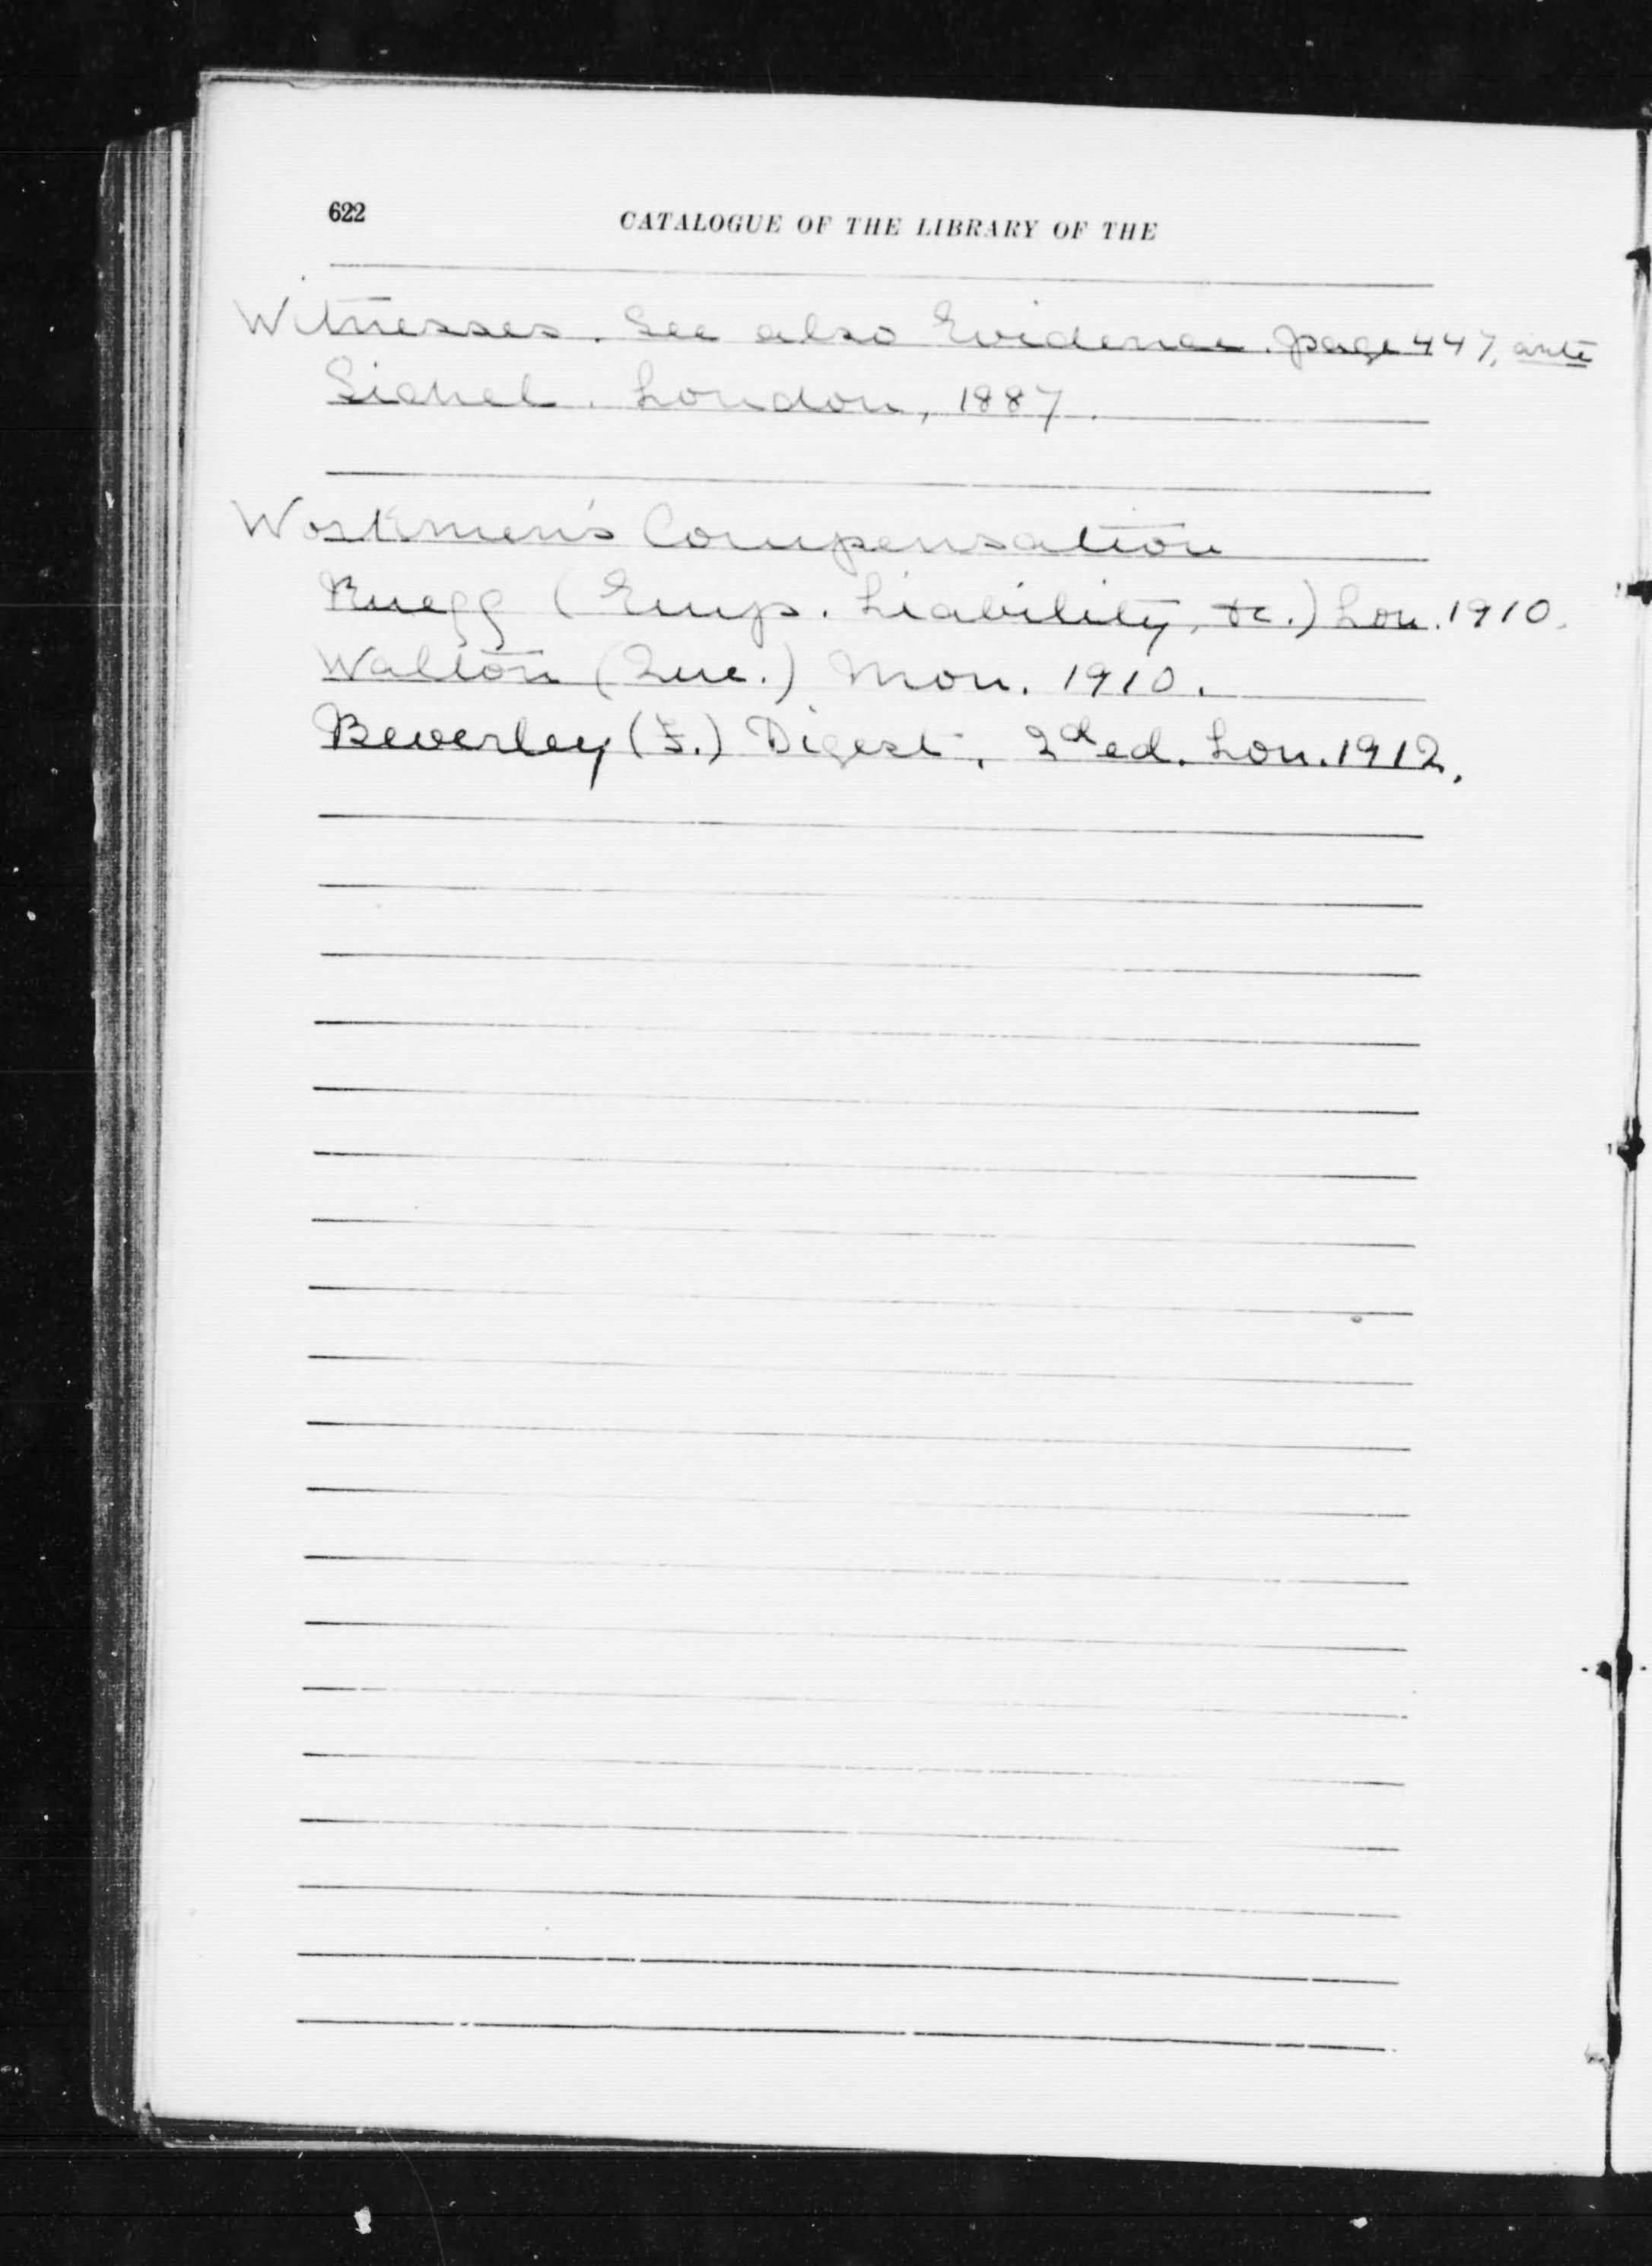 622
CATALOGUE OF THE LIBRARY OF THE
Witnesses. See also Evidence. page 447, ante
Sichel. London, 1887.
Workmen's Compensation
Ruegg (Emp. Liability, &c.) Lon. 1910.
Walton (Que.) Mon. 1910.
Beverley (F.) Digest, 2d ed. Lon. 1912.